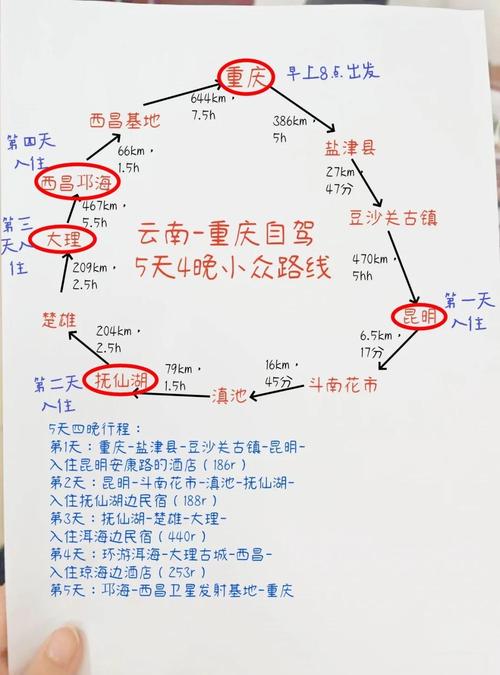 重庆
早上8点出发
644km，
7.5h
386km，
5h
西昌基地
盐津县
第四天
入住
66km，
1.5h
27km，
47分
西昌邛海
豆沙关古镇
467km，
5.5h
第三
天入
住
大理
云南-重庆自驾
5天4晚小众路线
209km，
2.5h
470km，
5hh
昆明
第一天
入住
楚雄
204km，
2.5h
6.5km，
17分
第二天
入住
抚仙湖
79km，
1.5h
16km，
45分
滇池
斗南花市
5天四晚行程：
第1天：重庆-盐津县-豆沙关古镇-昆明-
入住昆明安康路的酒店（186r）
第2天：昆明-斗南花市-滇池-抚仙湖-
入住抚仙湖边民宿（188r）
第3天：抚仙湖-楚雄-大理-
入住洱海边民宿（440r）
第4天：环游洱海-大理古城-西昌-
入住琼海边酒店（253r）
第5天：邛海-西昌卫星发射基地-重庆